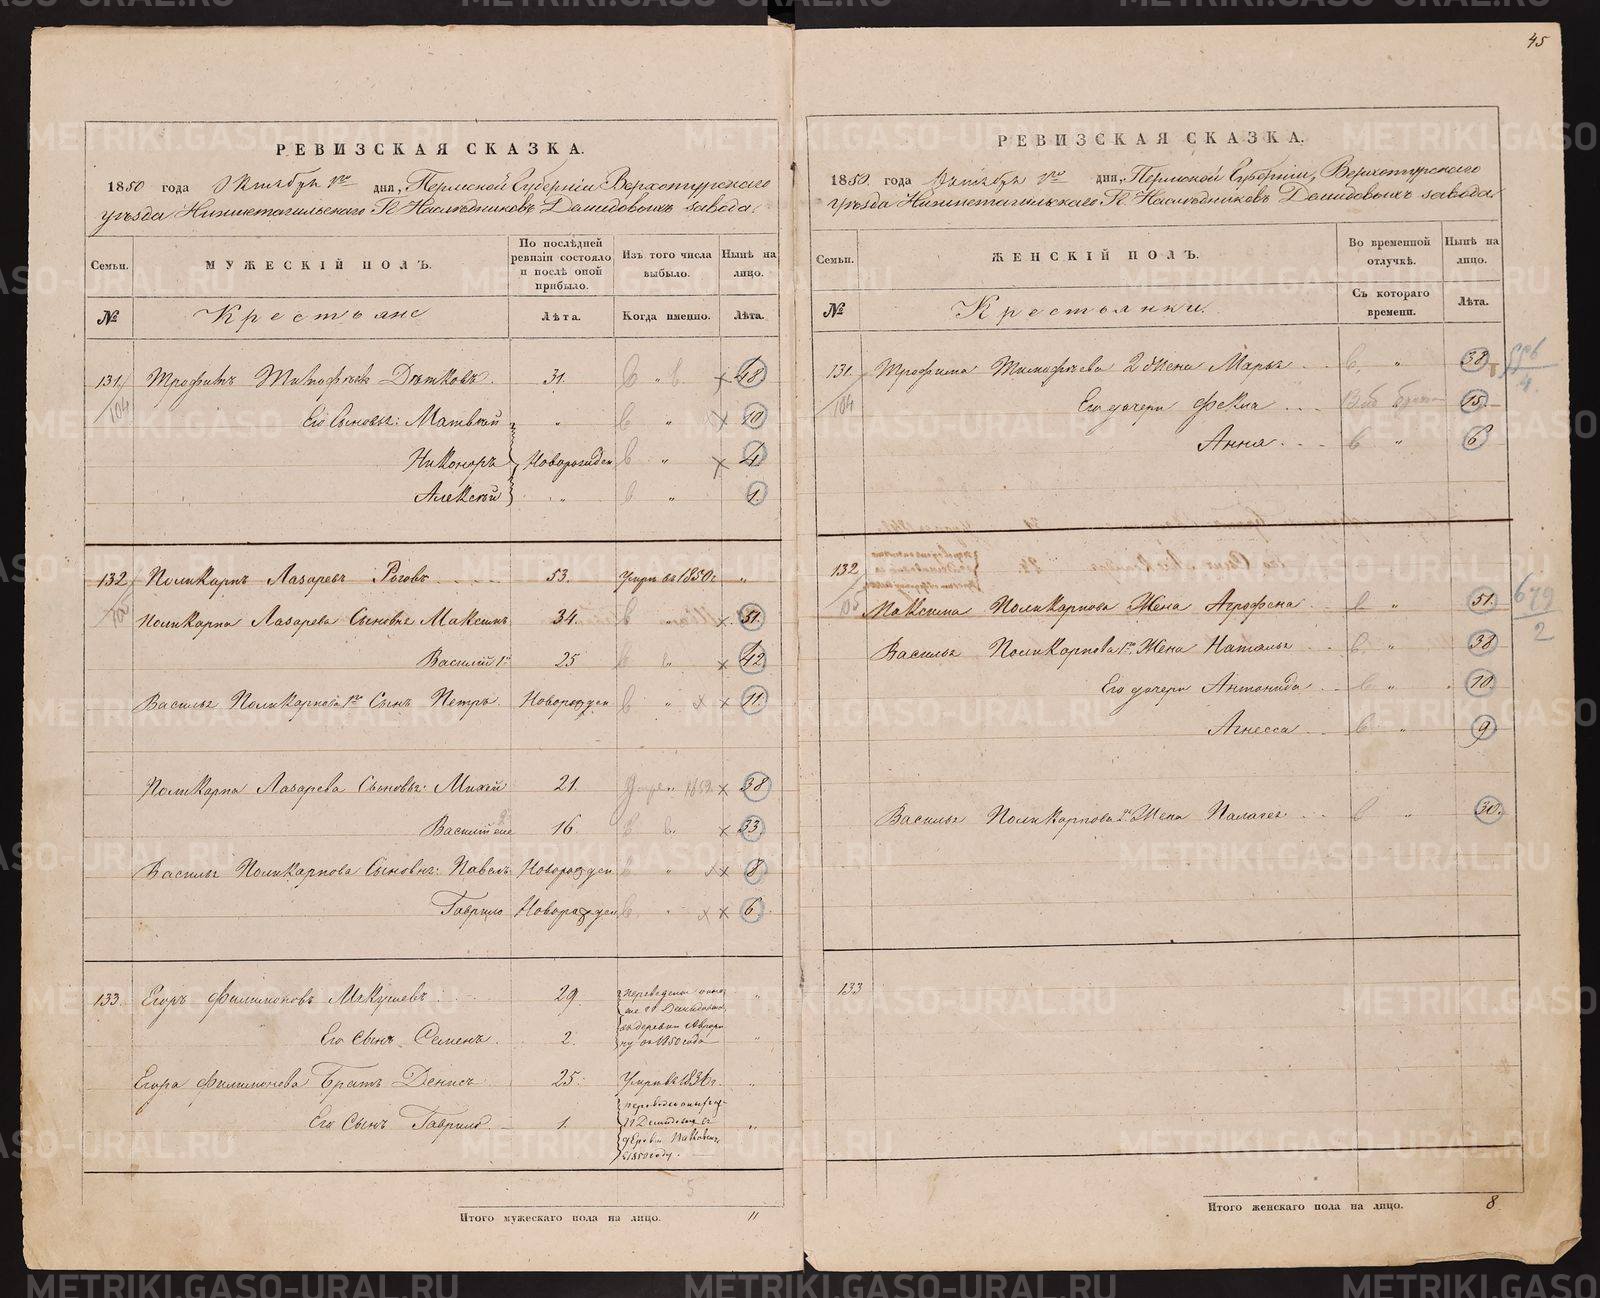 45
РЕВИЗСКАЯ СКАЗКА.
1850 года Октября дня, Пермской Губерніи Верхотурскаго
уѣзда Нижнетагильскаго Гг. Наслѣдниковъ Демидовыхъ завода.
Семьи. МУЖЕСКІЙ ПОЛЪ. По послѣдней ревизіи состояло и послѣ оной прибыло. Изъ того числа выбыло. Нынѣ на лицо.
№ Крестьяне Лѣта. Когда именно. Лѣта.
131 Трофимъ Тимофѣевъ Дѣтковъ. 31. 48
104 Его Сыновья: Матвѣй 10
Никоноръ Новорожден 4
Алексѣй 1.
132 Поликарпъ Лазаревъ Роговъ 53. Умре въ 1850 г.
Поликарпа Лазарева Сыновья Максимъ 34. 51.
Василій 1й 25 42
Василья Поликарпова 1го Сынъ Петръ. Новорожден 11.
Поликарпа Лазарева Сыновья: Михей 21. 38
Василій 16. 33
Василья Поликарпова Сыновья: Павелъ Новорожден 8
Гаврило Новорожден 6.
133. Егоръ Филимоновъ 29.
Его Сынъ Семенъ. 2.
переведены Демидовыхъ въ деревню 1850 года
Егора Филимонова Братъ Денисъ 25. Умре въ 183 г.
Его Сынъ Гаврило 1.
переведенъ Демидовыхъ въ 1850 году.
Итого мужескаго пола на лицо. 11
РЕВИЗСКАЯ СКАЗКА.
1850 года Октября дня, Пермской Губерніи, Верхотурскаго
уѣзда Нижнетагильскаго Гг. Наслѣдниковъ Демидовыхъ завода.
Семьи. ЖЕНСКІЙ ПОЛЪ. Во временной отлучкѣ. Нынѣ на лицо.
№ Крестьянки. Съ котораго времени. Лѣта.
131. Трофима Тимофѣева 2 Жена Марья 38
104 Его дочери Фекла 15.
Анна 6
132 Максима Поликарпова Жена Агрофена 51. 679
2
Василья Поликарпова 1го Жена Наталья 38
Его дочери Антонида 10
Агнесса 9
Василья Поликарпова 2 Жена Палагея 30.
133
Итого женскаго пола на лицо. 8
METRIKI.GASO-URAL.RU